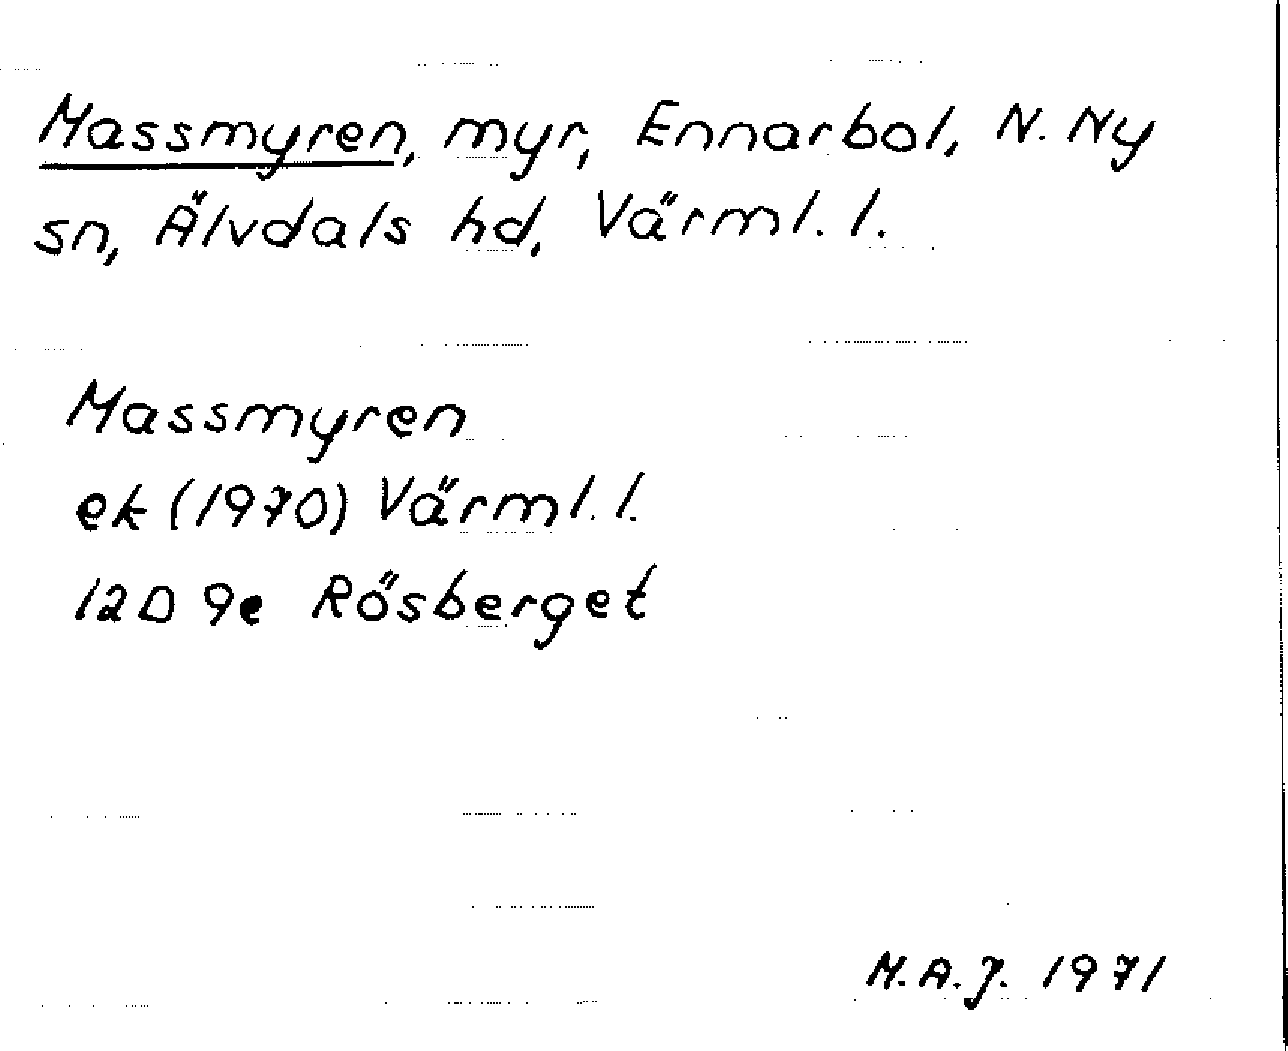 Massmyren, myr, Ennarbol, N. Ny
sn, Älvdals hd, Värml. l.
Massmyren
ek (1970) Värml. l.
12D 9e Rösberget
M.A.J. 1971